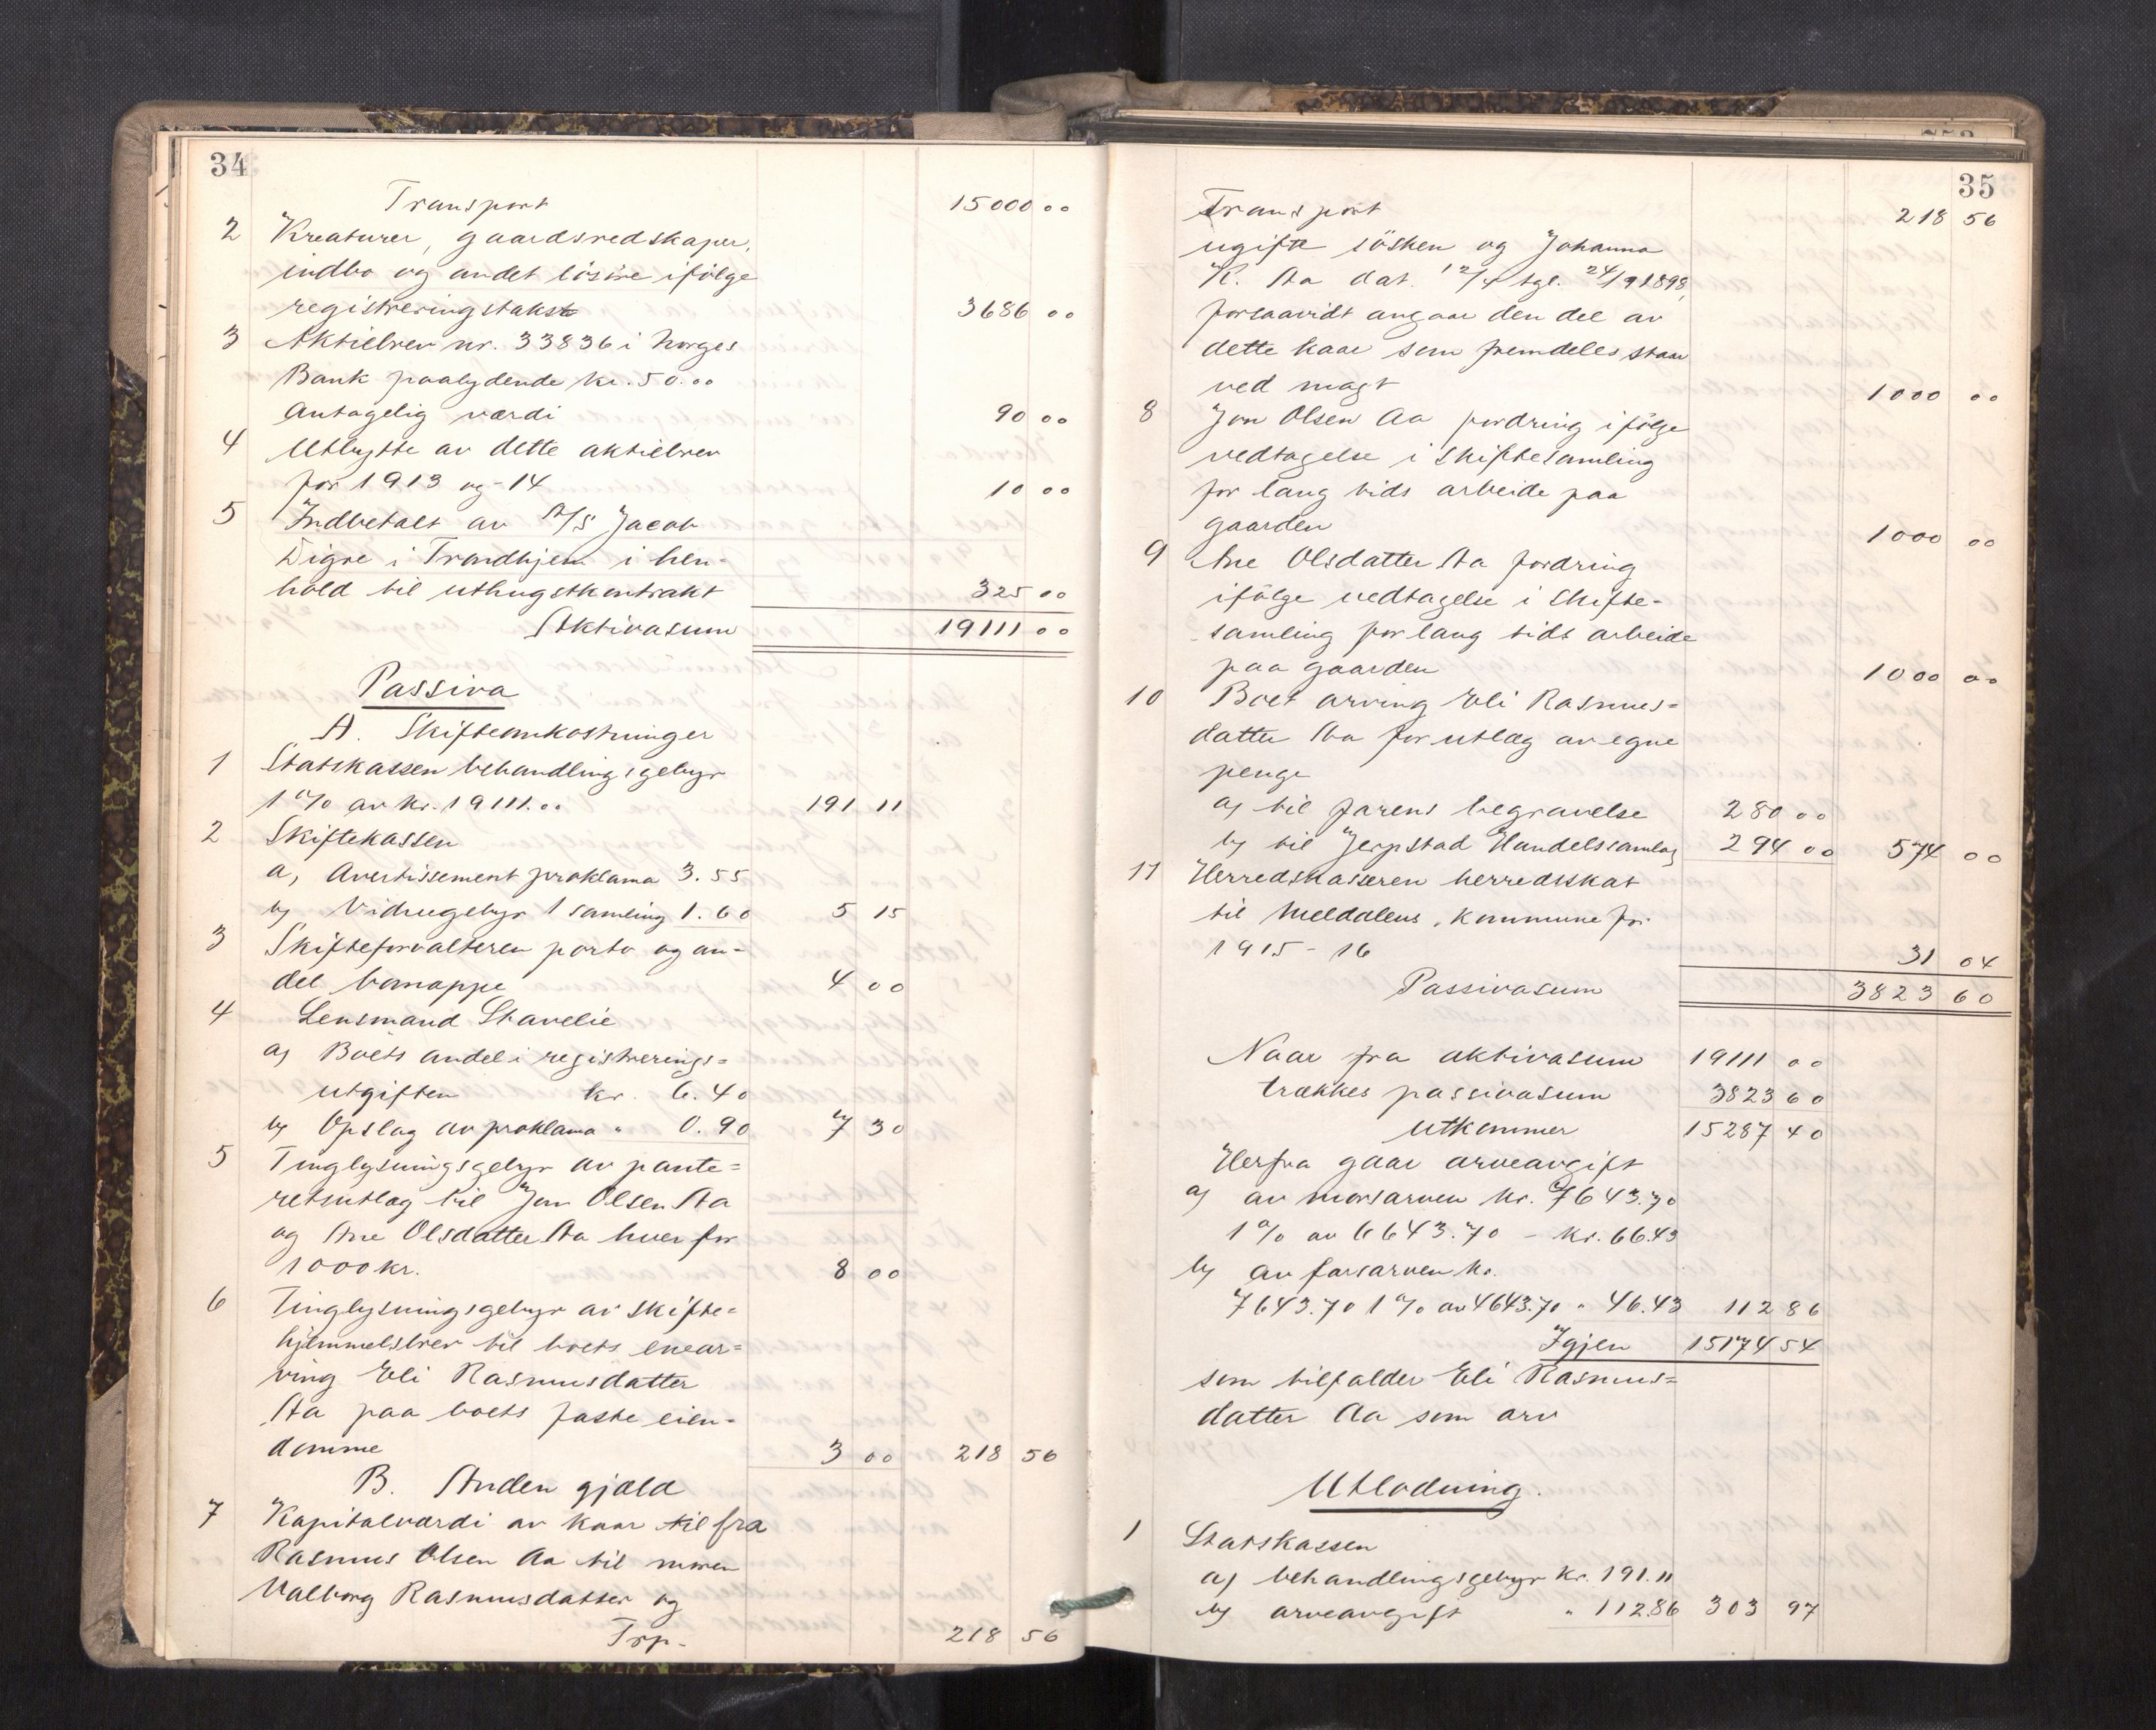 34
Transport 15000 00
2 Kreaturer, gaardsredskaper,
indbo og andet løsøre ifølge
registreringstakst 3686 00
3 Aktiebrev nr. 33836 i Norges
Bank paalydende kr. 50.00
Antagelig værdi 90 00
4 Utbytte av dette aktiebrev
for 1913 og -14 10 00
5 Indbetalt av A/S Jacob
Digre i Trondhjem i hen-
hold til uthugstkontrakt 325 00
Aktivasum 19111 00
Passiva
A. Skifteomkostninger
1 Statskassen behandlingsgebyr
1 % av kr. 19111.00 191 11
2 Skiftekassen
a, Avertissement proklama 3.55
b, Vidnegebyr 1 samling 1.60 5 15
3 Skifteforvalteren porto og an-
del 4 00
4 Lensmand Stavelie
a, Boets andel i registrerings-
utgiften kr. 6.40
b, Opslag av proklama " 0.90 7 30
5 Tinglysningsgebyr av pante-
retsutlæg til Jon Olsen Aa
og Ane Olsdatter Aa hver for
1000 kr. 8 00
6 Tinglysningsgebyr av skifte-
hjemmelsbrev til boets enear-
ving Eli Rasmusdatter
Aa paa boets faste eien-
domme 3 00 218 56
B. Anden gjæld
7 Kapitalværdi av kaar til fra
Rasmus Olsen Aa til moren
Valborg Rasmusdatter og
Trp. 218 56
35
Transport 218 56
ugifte søsken og Johanna
K. Aa dat. 12/4 tgl. 24/9 1898,
forsaavidt angaar den del av
dette kaar som fremdeles staar
ved magt 1000 00
8 Jon Olsen Aa fordring ifølge
vedtagelse i skiftesamling
for lang tids arbeide paa
gaarden 1000 00
9 Ane Olsdatter Aa fordring
ifølge vedtagelse i skifte-
samling for lang tids arbeide
paa gaarden 1000 00
10 Boet arving Eli Rasmus-
datter Aa for utlæg av egne
penge
a, til farens begravelse 280 00
b, til Jerpstad Handelssamlag 294 00 574 00
11 Herredskasseren herredsskat
til Meldalens kommune for
1915 - 16 31 04
Passivasum 3823 60
Naar fra aktivasum 19111 00
trækkes passivasum 3823 60
utkommer 15287 40
Herfra gaar arveavgift
a, av morsarven kr. 7643.70
1 % av 6643.70 - kr. 66.43
b, av farsarven kr.
7643.70 1 % av 4643.70 " 46.43 112 86
Igjen 15174 54
som tilfalder Eli Rasmus-
datter Aa som arv
Utlodning.
1 Statskassen
a, behandlingsgebyr kr. 191.11
b, arveavgift " 112.86 303 97